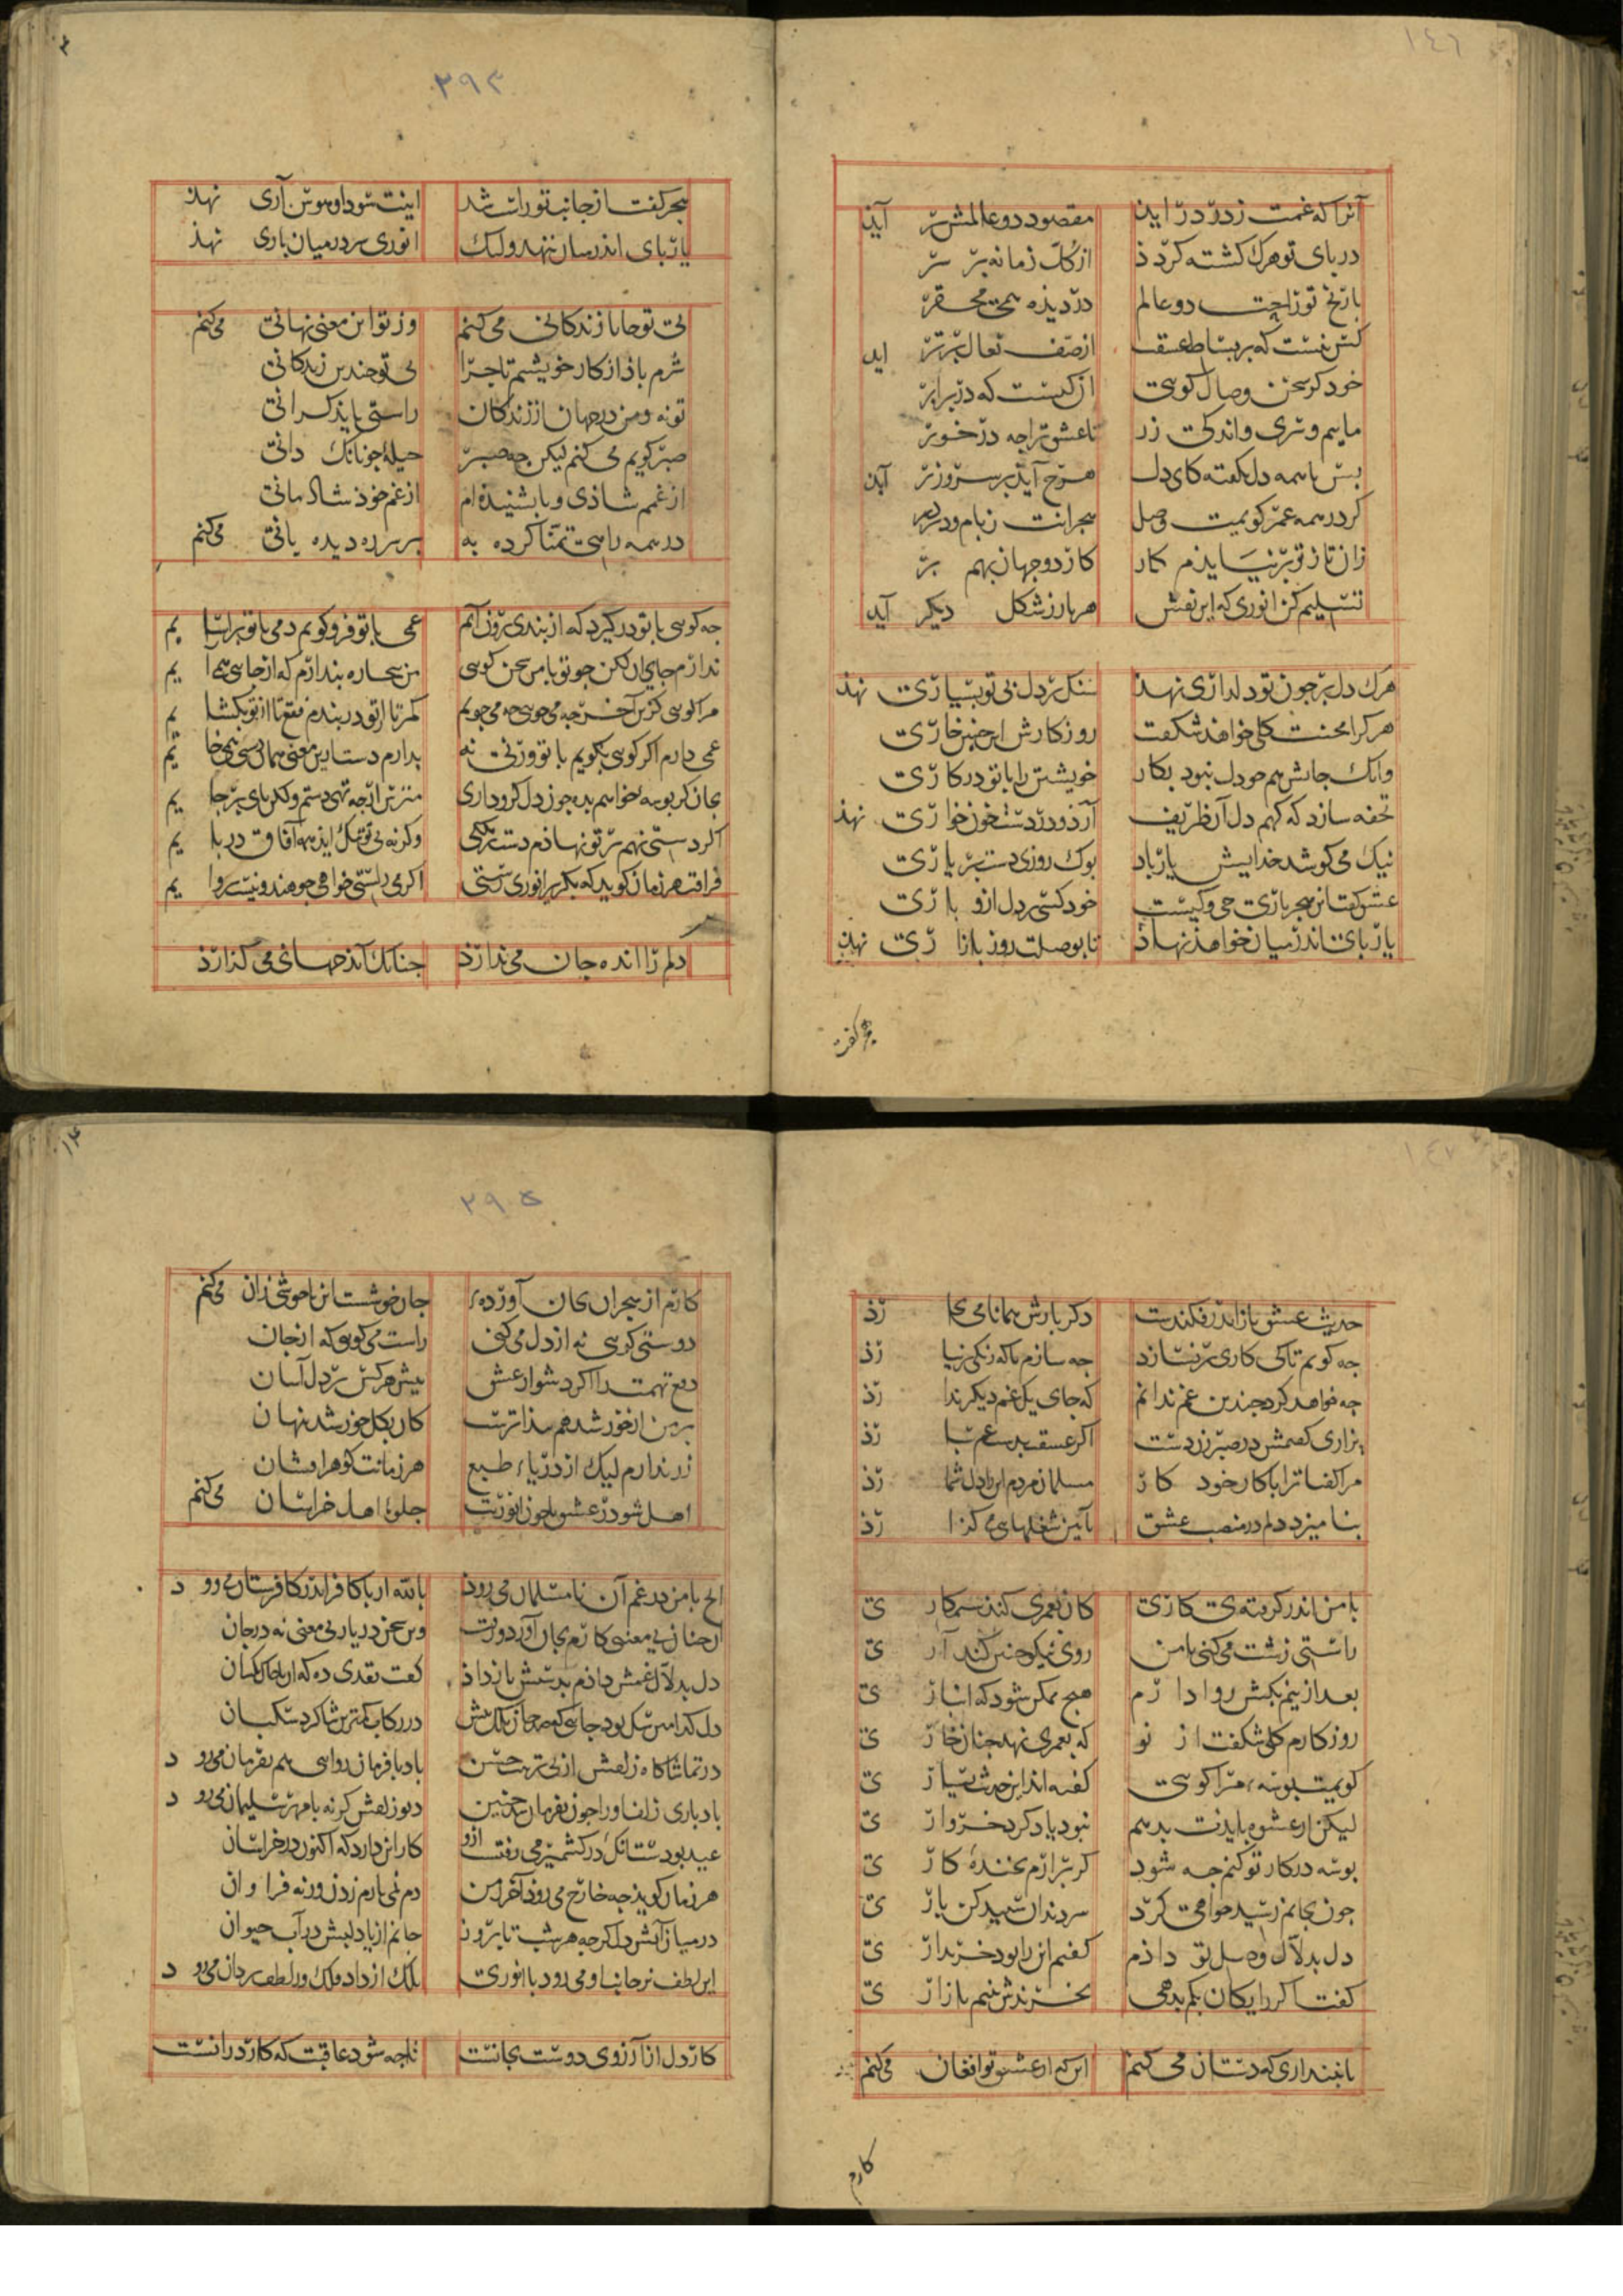 ١٤٦
آنرا که غمت ز در در آید مقصود دو عالمش بر آید
در پای تو هرک کشته کردذ از کل زمانه بر سر
با رنج تو راحت دو عالم در دیده همی محقر
کس نیست که بر بساط عشقت از صف نعال برتر آید
خود کر سخن وصال کویی آن کیست که در برابر
ماییم و سری و اندکی زر تا عشق ترا چه در خور
بس با همه دل بکفته کای دل هرچ آید بر سر و زر آید
کر در همه عمر کویمت وصل هجرانت ز بام و در در
زان تا ز تو بر نیایدم کار کار دو جهان بهم بر
تسلیم کن انوری که این نقش هر بار ز شکل دیکر آید
هرک دل بر چون تو دلداری نهذ سنک بر دل بی تو بسیاری نهذ
هر کرا محنت کلی خواهذ شکفت روزکارش این چنین خاری
وانک جانش همچو دل نبود بکار خویشتن را با تو در کاری
تحفه سازد که کهم دل آن ظریف آرد و در دست خون خواری نهذ
نیک می کوشد خدایش یار باد بوک روزی دست بر یاری
عشق کفتا این هجر باری حی و کیست خود کسی بر دل ازو باری
یار پای اندر میان خواهذ نهاذ تا بوصلت روز بازاری نهذ
هجر کفت
٢٩٣
هجر کفت از جانب تو راست شد اینت سودا و هوس آری نهذ
یار پای اندر میان ننهد ولیک انوری سر در میان باری نهذ
بی تو جانا زندکانی می کنم وز تو این معنی نهانی می کنم
شرم باذ از کار خویشم تا چرا بی تو چندین زندکانی
تو نه و من در جهان از زندکان راستی باید کرانی
صبر کویم می کنم لیکن چه صبر حیله چونانک دانی
از غمم شاذی و با بشنیده ام از غم خوذ شادمانی
در همه راحت تمنا کرده به بر سر ره دیده بانی می کنم
چه کویی با تو در کیرد که از بندی برون آیم غمی با تو فرو کویم دمی با تو براسایم
ندارم جای آن لکن چو تو با من سخن کویی من بیچاره پندارم که از جایی همی آیم
مرا کویی کزین آخر چه می جویی چه می جویم کمر تا از تو دربندم فقع تا از تو بکشایم
غمی دارم اکر کویی بکویم با تو ورنی نه بدارم دست ازین معنی همان دستی همی خایم
بجان کر بوسه خواهم بده چون دل کرو داری مترس ار چه تهی دستم ولکن پای بر جایم
اکر دستی نهم بر تو نهاذم دست بر ملکی وکر نه بی تو تا ملک ایذ همه آفاق در پایم
فراقت هر زمان کوید که بکریز انوری رستی اکر می راستی خواهی چو هندو نیست پروایم
دلم را انده جان می ندارذ چنانک آید جهانی می کذارذ
١٤٧
حدیث عشق باز اندر فکندست دکر بارش همانا می بخارذ
چه کویم تا کی کاری بر نسازد چه سازم تا که رنکی بر نیارذ
چه خواهد کرد چندین غم ندانم که جای یک غم دیکر ندارذ
بزاری کفتمش در صبر زن دست اکر عشقت بدست غم سپارذ
مرا کفتا ترا با کار خود کار مسلمان مردم این را دل شمارذ
بنا میزد دلم در منصب عشق بآیین شغلهایی می کزارذ
با من اندر کرفته ی کاری کان بعمری کند ستمکاری
راستی زشت می کنی با من روی نیکو چنین کند آری
بعد ازینم بکش روا دارم هیچ ممکن شود که این بار ی
روزکارم کلی شکفت از تو که بعمری نهد چنان خاری
کویمت بوسه مرا کویی کفته اند این حدیث بسیاری
لیکن ار عشوه بایدت بدهم نبود یاد کرد خرواری
بوسه در کار تو کنم چه شود کر برارم بخنده کاری
چون بجانم رسید خواهی کرد سر دندان سپید کن باری
دل بدلال وصل تو داذم کفتم این را بود خریداری
کفت اکر رایکان بکم بدهی بخرندش نیم بازاری
تا نپنداری که دستان می کنم این که از عشق تو افغان می کنم
کارم
٢٩٥
کارم از هجران بجان آورده جان خوشست این ناخوشی زان می کنم
دوستی کویی نه از دل می کنی راست می کویی که از جان
دفع تهمت را اکر دشوار عشق پیش هر کس بر دل آسان
بر من از خورشید هم پیداترست کار بکل خورشد نهان
زر ندارم لیک از دریاء طبع هر زمانت کوهر افشان
اهل شو در عشق ما چون انوریت جلوء اهل خراسان می کنم
الح با من در غم آن نامسلمان می رود بالله ار با کافر اندر کافرستان می رود
دل بدلال غمش داذم بدستش باز داذ کفت نقدی ده که این با خاک یکسان
در تماشاکاه زلفش از پی ترتیب حسن باد با فرمان روایی هم بفرمان می رود
باد باری زلف او را چون بفرمان شد چنین دیو زلفش کرنه با مهر سلیمان می رود
عید بودست آنک در کشمیر می رفتست ازو کار این دارد که اکنون در خراسان
هر زمان کوید چه خارج می رود آخر ازین دم نمی یارم زدن ورنه فراوان
در میان آتش دل کرچه هر شب تا بروز جانم از یاد لبش در آب حیوان
این لطف نز جانب او می رود با انوری بلک از داد ملک وز لطف یزدان می رود
کار دل از آرزوی دوست بجانست تا چه شود عاقبت که کار در آنست